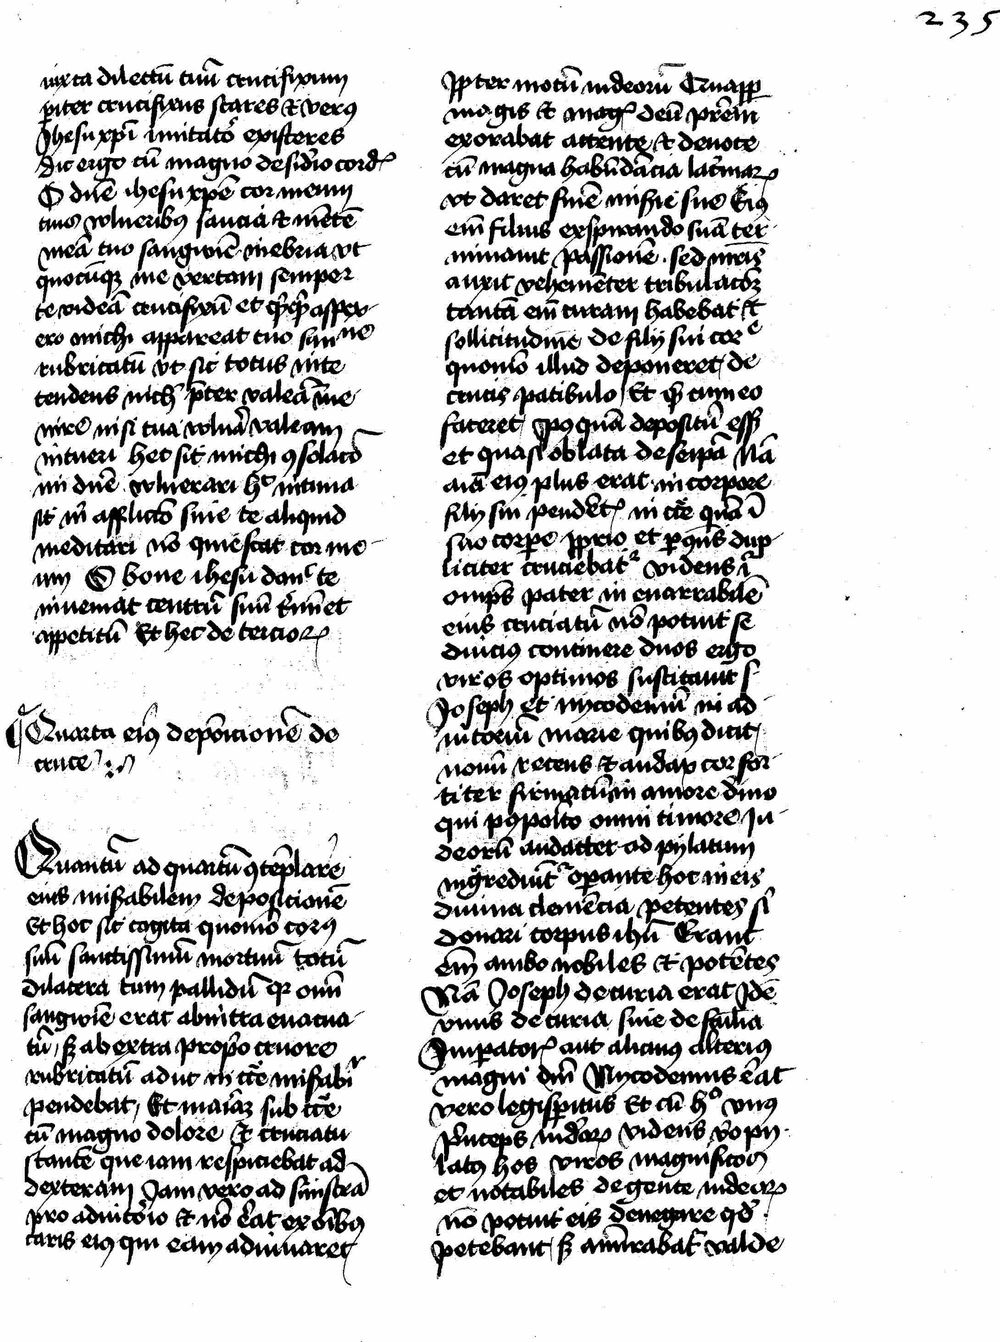 235
iuxta dilectū tuū crucifixum
pariter crucifixus stares et verus
Jhesu xpi imitator existeres
dic ergo cū magno desiderio cordis
O dne ihesu xpe cor meum
tuis vulneribus saucia et mentē
meā tuo sangwine inebria vt
quocūqz me vertam semper
te videā crucifixū et quicquid aspex
ero michi appareat tuo sanguine
rubricatū vt sic totus in te
tendens nichil preter te valeā inue
nire nisi tua vulnera valeam
intueri hec sit michi consolacio
mi dne vulnerari hec intima
sit michi afflictio sine te aliquid
meditari nō quiescat cor me
um O bone ihesu donec te
inueniat centrū suū terminet
appetitū Et hec de tercio
Quarta eius deposicionē de
cruce
Quantū ad quartū contemplare
eius miserabilem deposicionē
Et hoc sic cogita quomō corpus
suū sanctissimū mortuū totū
dilacera tum pallidū quia omnis
sangwis erat ab intra euacua
tus sed ab extra proprio cruore
rubricatū adhuc in cruce miserabiliter
pendebat, Et maria sub cruce
cū magno dolore et cruciatu
stante que iam respiciebat ad
dexteram Jam vero ad sinistrā
pro adiutorio et nō erat ex omibus
caris eius qui eam adiuuaret
propter motū iudeorū Quapp
magis et magis deū prem
exorabat attente et deuote
cū magna habūdācia lacrimarum
vt daret finē miserie sue Eius
eni filius exspirando suā ter
minauit passionē. sed matris
auxit vehementer tribulacionem
tantā enī curam habebat et
sollicitudinē de filij sui corpore
quomō illud deponeret de
crucis patibulo, Et quid cum eo
faceret, postquā depositū esset
et quasi oblita de seipsa Nā
aīa eius plus erat in corpore
filij sui pendentis in cruce quam in
suo corpore proprio et per consequens dup
liciter cruciebatur videns igitur
omps pater inenarrabilē
eius cruciatū nō potuit se
diucius continere duos ergo
viros optimos suscitauit scilicet
Joseph et nycodemū in ad
iutoriū marie quibus dicit
nouū recens et audax cor for
titer firmatū in amore diuino
qui postposito omni timore Ju
deorū audacter ad pylatum
ingrediuntur operante hoc in eis
diuina clemēcia petentes sibi
donari corpus ihū Erant
enī ambo nobiles et potētes
Nā Joseph decurio erat Idē
vnus de curia siue de familia
Imperatoris aut alicuius alterius
magni dni Nycodemus erat
vero legisperitus Et cū hoc vnus
Princeps iudeorum videns vero py
latus hos viros magnificos
et notabiles de gente iudeorum
nō potuit eis denegare quod
petebant, sed admirabatur valde